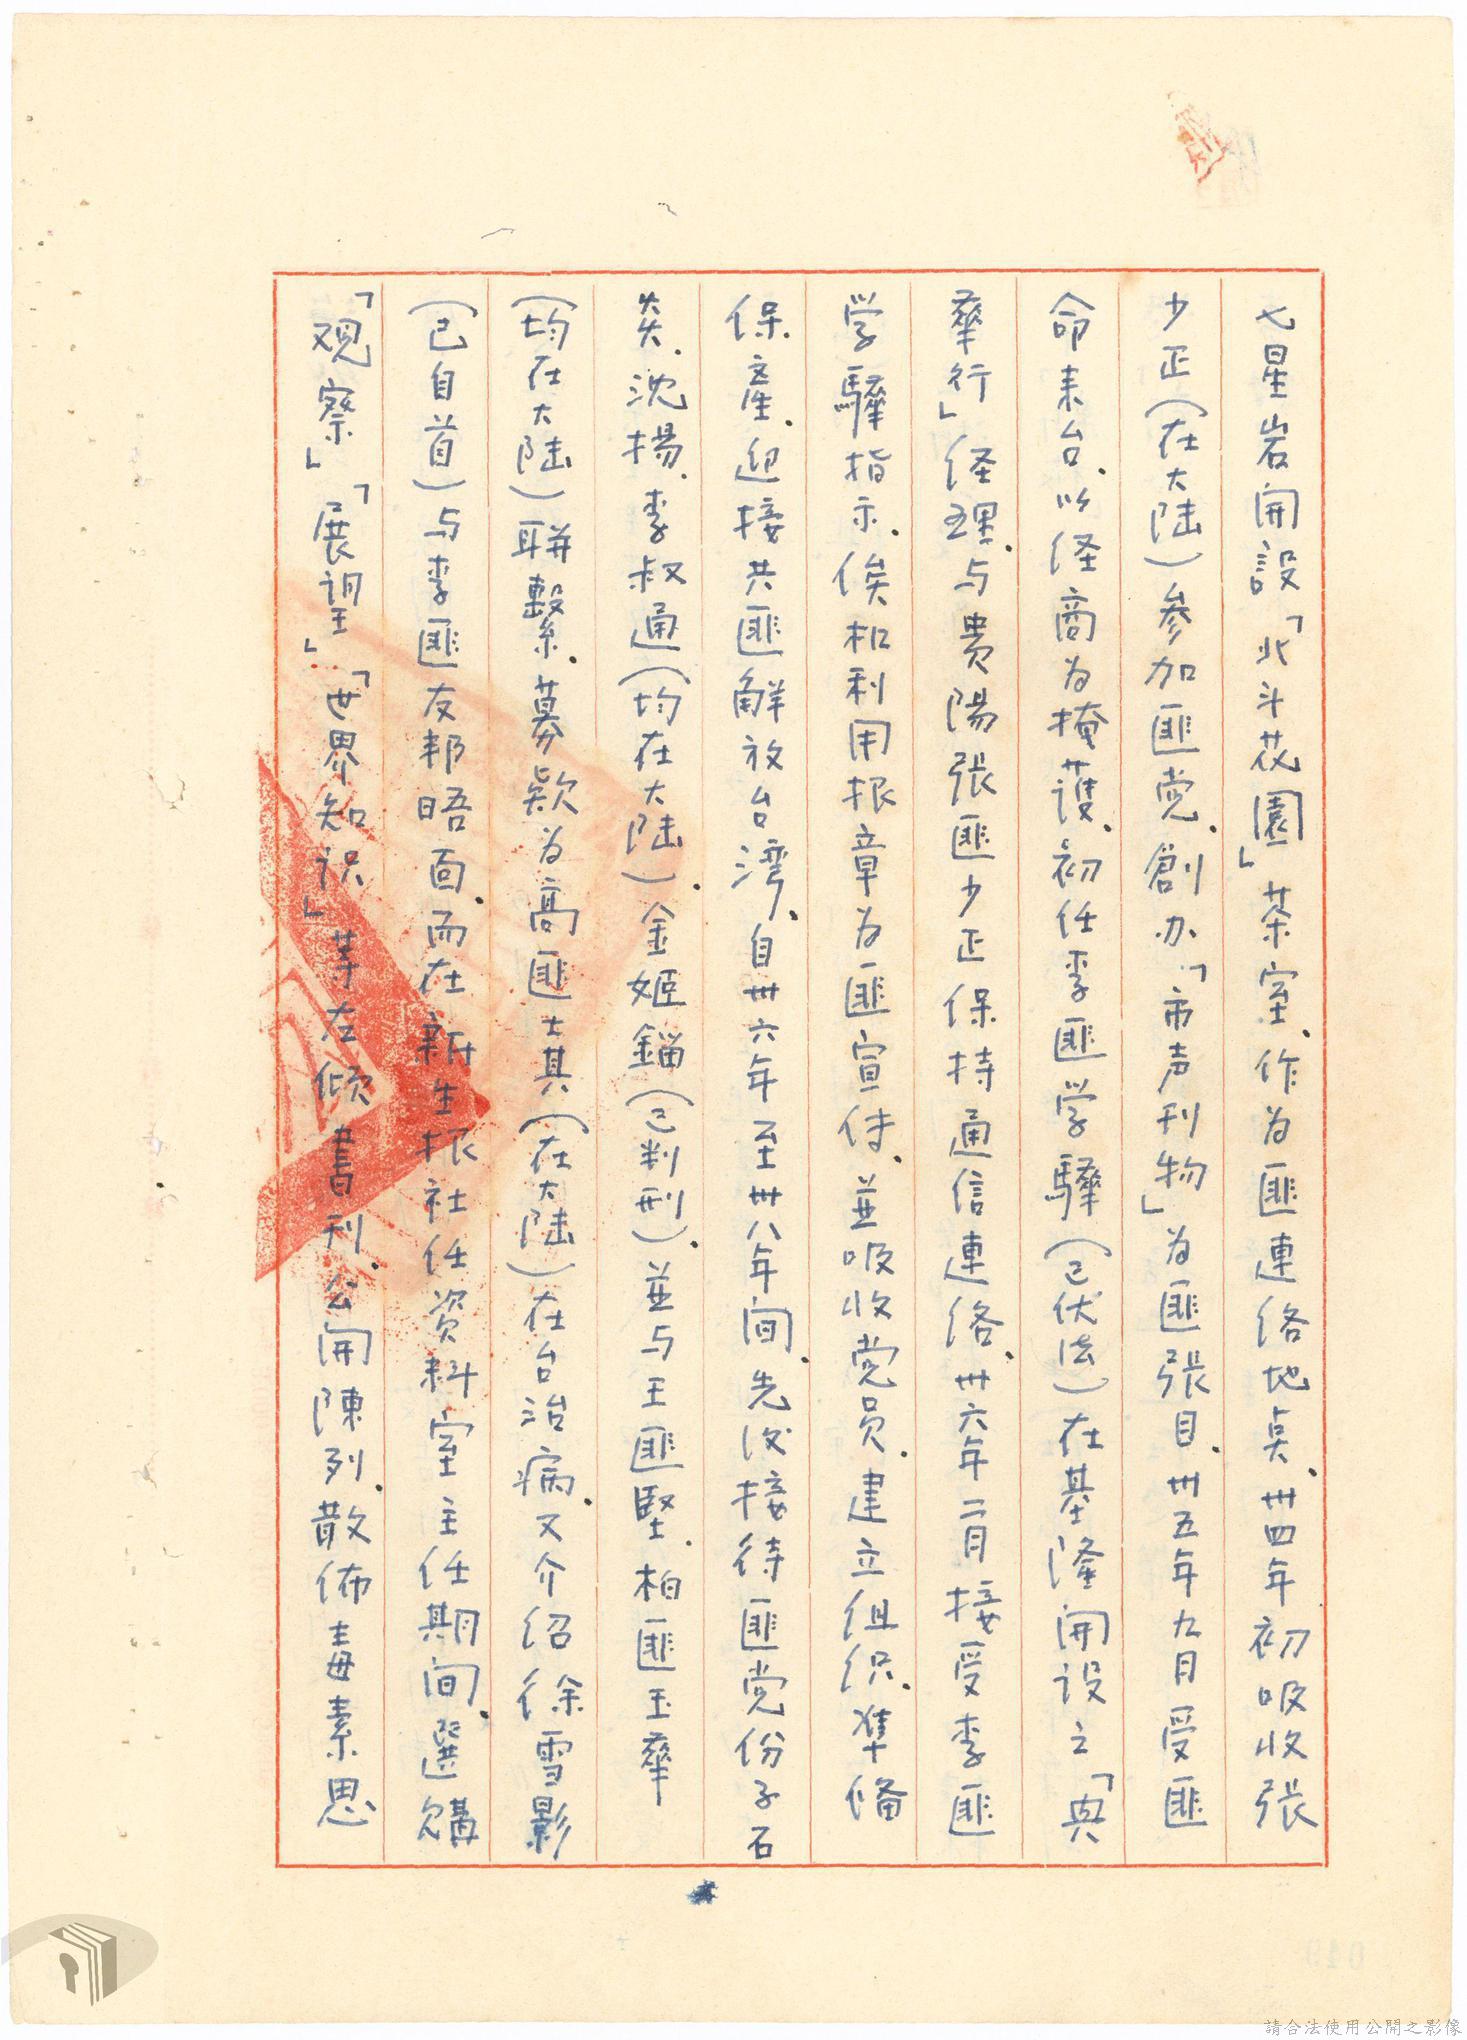 七星岩開設「北斗花園」茶室、作為匪連络地点、卅四年初吸收张
少正(在大陆)参加匪党、創办「市声刊物」为匪張目、卅五年九月受匪
命来台、以经商为掩護、初任李匪学驊(已伏法)在基隆開设之「典
華行」经理、与貴陽張匪少正保持通信連络、卅六年二月接受李匪
学驊指示、俟机利用报章为匪宣传、並吸收党员、建立组织、準俻
保産、迎接共匪觧放台湾、自卅六年至卅八年间、先后接待匪党份子石
炎、沈揚、李叔通(均在大陆)、金姬鎦(已判刑)、並与王匪堅、柏匪玉華
(均在大陆)联繫、募款为高匪士其(在大陆)在台治病、又介绍徐雪影
(已自首)与李匪友邦晤面、而在新生报社任资料室主任期间、選購
「观察」「展望」「世界知识」等左倾書刊、公開陳列、散佈毒素思
請合法使用公開之影像